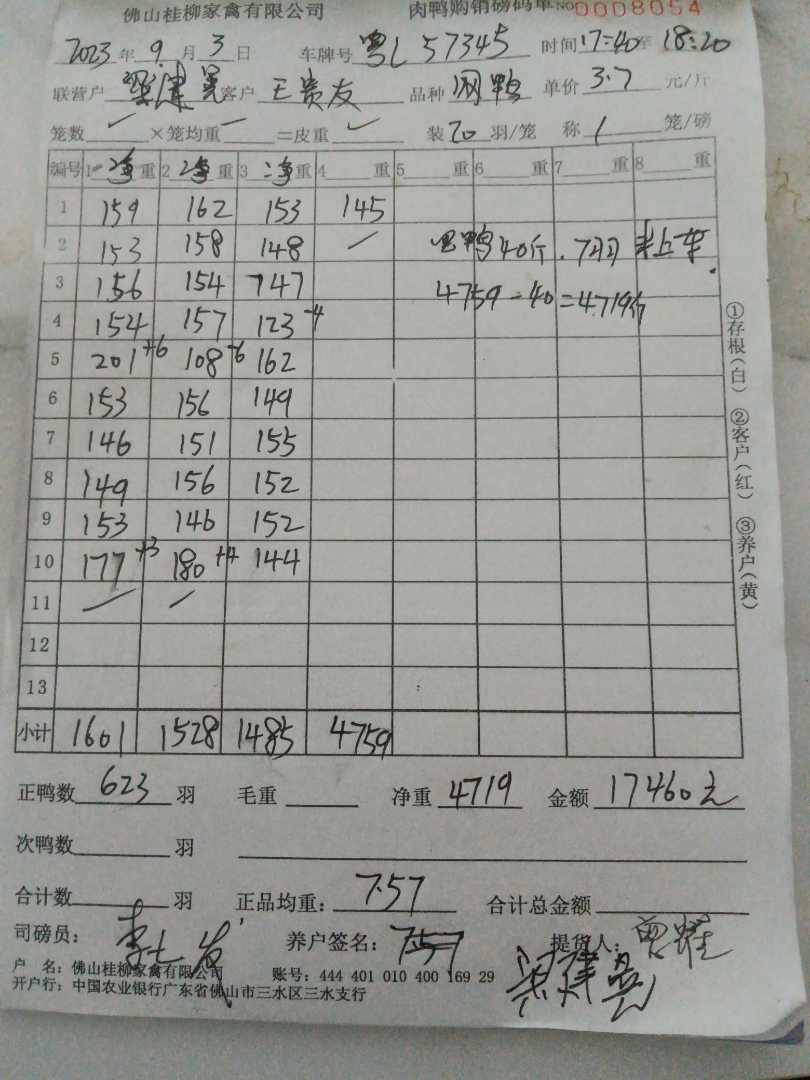 佛山桂柳家禽有限公司 肉鸭购销磅码单 №0008054
2023年9月3日 车牌号 粤L 57345 时间17:40至18:20
联营户 梁津晃 客户 王贵友 品种 网鸭 单价 3.7 元/斤
笼数 ✓ ×笼均重 — =皮重 ✓ 装 20 羽/笼 称 1 笼/磅
编号 1 净重 2 净重 3 净重 4 重 5 重 6 重 7 重 8 重
1 159 162 153 145
2 153 158 148 / 鸭40斤. 未上车.
3 156 154 147 4759-40=4719斤
4 154 157 123 -4
5 201 +6 108 -6 162
6 153 156 149
7 146 151 155
8 149 156 152
9 153 146 152
10 177 +3 180 +4 144
11 / /
12
13
小计 1601 1528 1485 4759
正鸭数 623 羽 毛重 净重 4719 金额 17460元
次鸭数 羽
合计数 羽 正品均重: 7.57 合计总金额
司磅员: 养户签名: 757 提货人: 曾耀
户 名: 佛山桂柳家禽有限公司 账号: 444 401 010 400 169 29
开户行: 中国农业银行广东省佛山市三水区三水支行
①存根(白) ②客户(红) ③养户(黄)